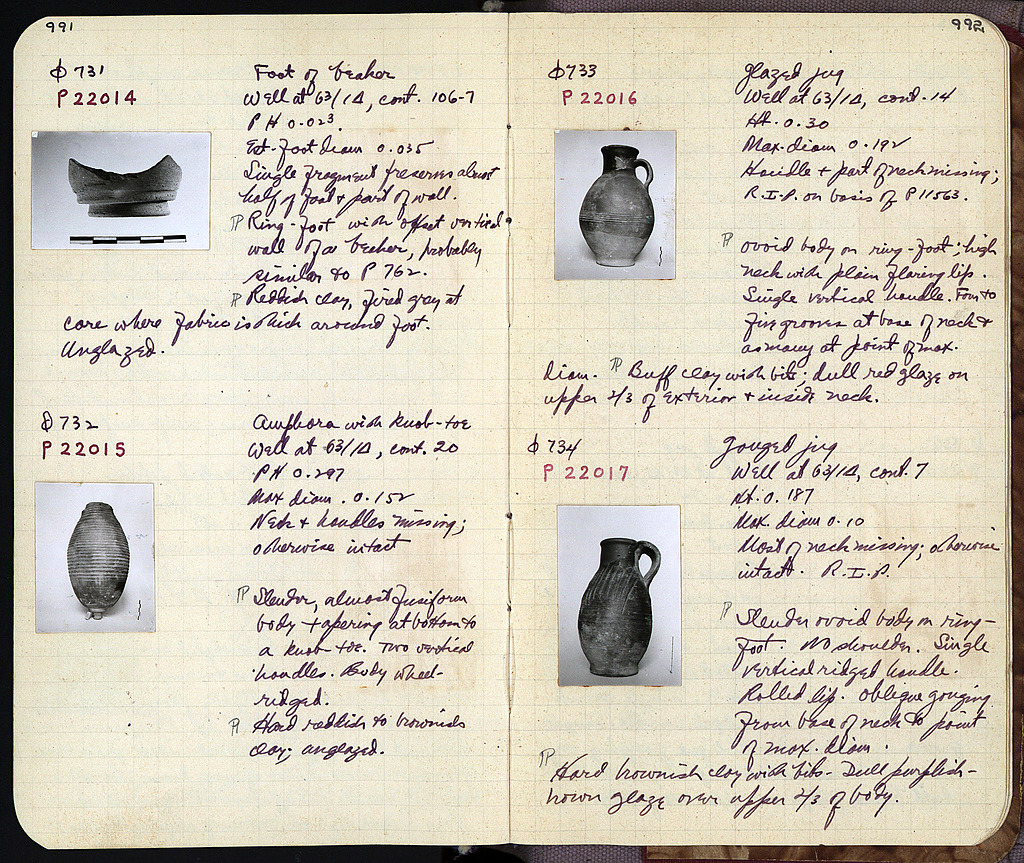 991
Φ 731
P 22014
Foot of beaker
Well at 63/ΙΔ, cont. 106-7
P H 0.023.
Est. foot diam 0.035
Single fragment preserves almost
half of foot & part of wall.
¶ Ring-foot with offset vertical
wall of a beaker, probably
similar to P 762.
¶ Reddish clay, fired gray at
core where fabric is thick around foot.
Unglazed.
Φ 732
P 22015
Amphora with knob-toe
Well at 63/ΙΔ, cont. 20
P H 0.297
Max diam. 0.152
Neck & handles missing;
otherwise intact
¶ Slender, almost fusiform
body tapering at bottom to
a knob toe. Two vertical
handles. Body wheel-
ridged.
¶ Hard reddish to brownish
clay; unglazed.
992
Φ733
P 22016
Glazed jug
Well at 63/ΙΔ, cont. 14
Ht. 0.30
Max. diam 0.192
Handle & part of neck missing;
R.I.P. on basis of P 11563.
¶ Ovoid body on ring-foot; high
neck with plain flaring lip.
Single vertical handle. Four to
five grooves at base of neck &
as many at point of max.
diam. ¶ Buff clay with bits; dull red glaze on
upper 2/3 of exterior & inside neck.
Φ 734
P 22017
Gouged jug
Well at 63/ΙΔ, cont. 7
Ht. 0.187
Max. diam 0.10
Most of neck missing; otherwise
intact. R.I.P.
¶ Slender ovoid body on ring-
foot. No shoulder. Single
vertical ridged handle.
Rolled lip. Oblique gouging
from base of neck to point
of max. diam.
¶ Hard brownish clay with bits. Dull purplish-
brown glaze over upper 2/3 of body.